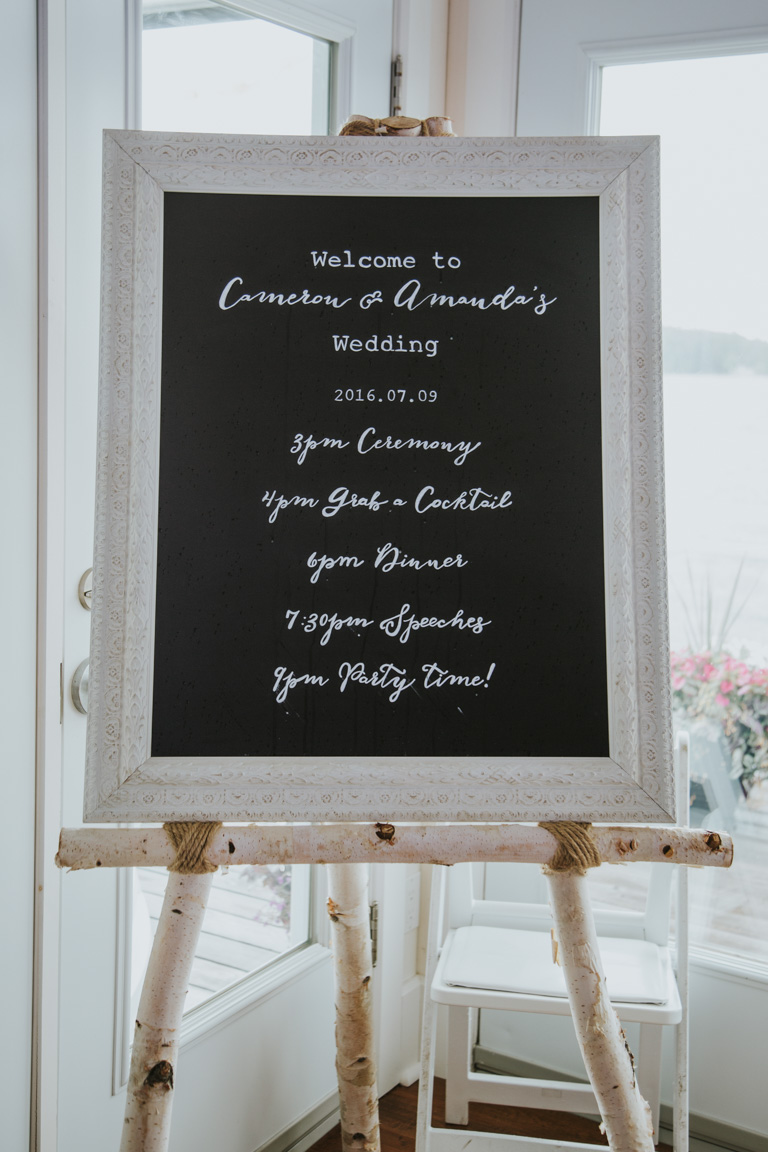 Welcome to
Cameron & Amanda's
Wedding
2016.07.09
3pm Ceremony
4pm Grab a Cocktail
6pm Dinner
7:30pm Speeches
9pm Party time!